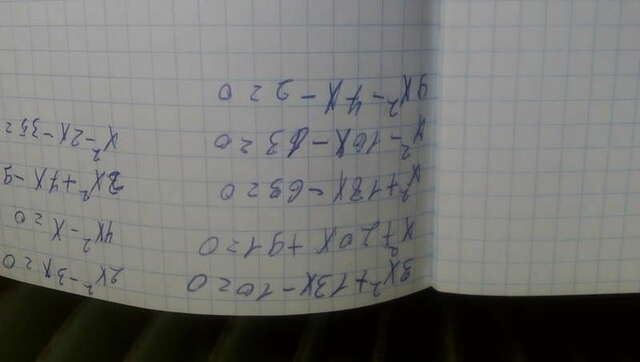 3x²+13x-10=0
x²+20x+91=0
x²+18x-63=0
x²-16x-63=0
9x²-4x-2=0
2x²-3x=0
4x²-x=0
3x²+7x-9
x²-2x-35=